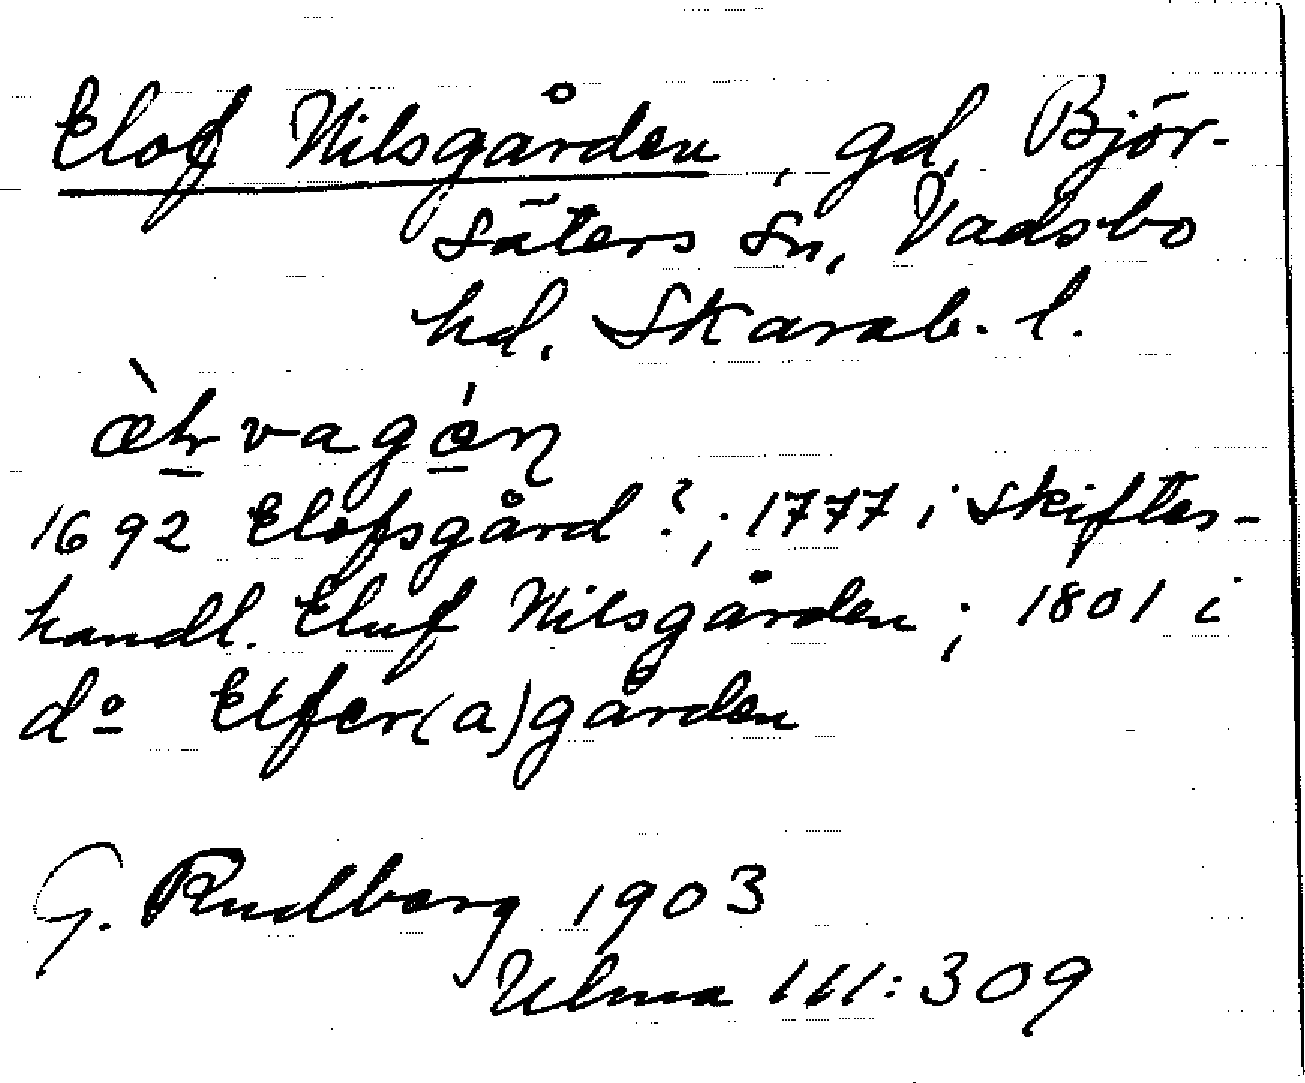 Elof Nilsgården, gd, Björ-
säters sn, Vadsbo
hd, Skarab. l.
1692 Elofsgård?; 1777 i Skiftes-
handl. Eluf Nilsgården; 1801 i
do Elfer(a)gården
G. Rudberg 1903
Ulma 111:309